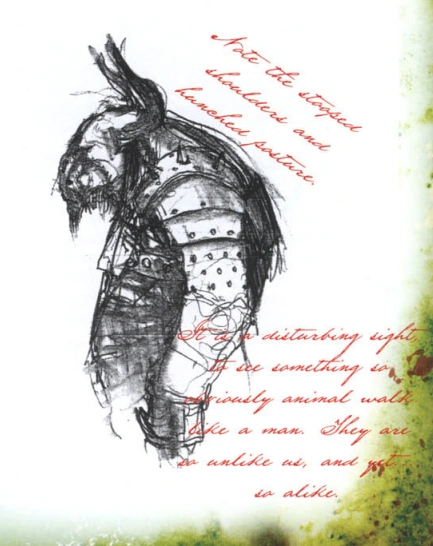 Note the stooped
shoulders and
hunched posture.
It is a disturbing sight
to see something so
obviously animal walk
like a man. They are
so unlike us, and yet
so alike.